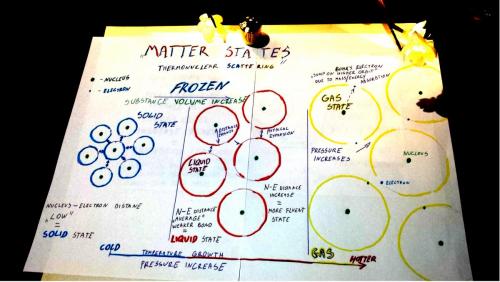 "MATTER STATES"
THERMONUCLEAR SCATTERING"
- NUCLEUS
- ELECTRON
FROZEN
SUBSTANCE VOLUME INCREASE
SOLID
STATE
NUCLEUS-ELECTRON DISTANE
"LOW"
=
SOLID STATE
LIQUID
STATE
PHYSICAL
EXPANSION
N-E DISTANCE
"AVERAGE"
WEAKER BOND
=
LIQUID STATE
N-E DISTANCE
INCREASE
=
MORE FLUENT
STATE
ELECTRON
"JUMP ON HIGHER ORBIT"
DUE TO MASS/ENERGY
ABSORBTION
GAS
STATE
PRESSURE
INCREASES
NUCLEUS
ELECTRON
GAS
COLD
TEMPERATURE GROWTH
HOTTER
PRESSURE INCREASE